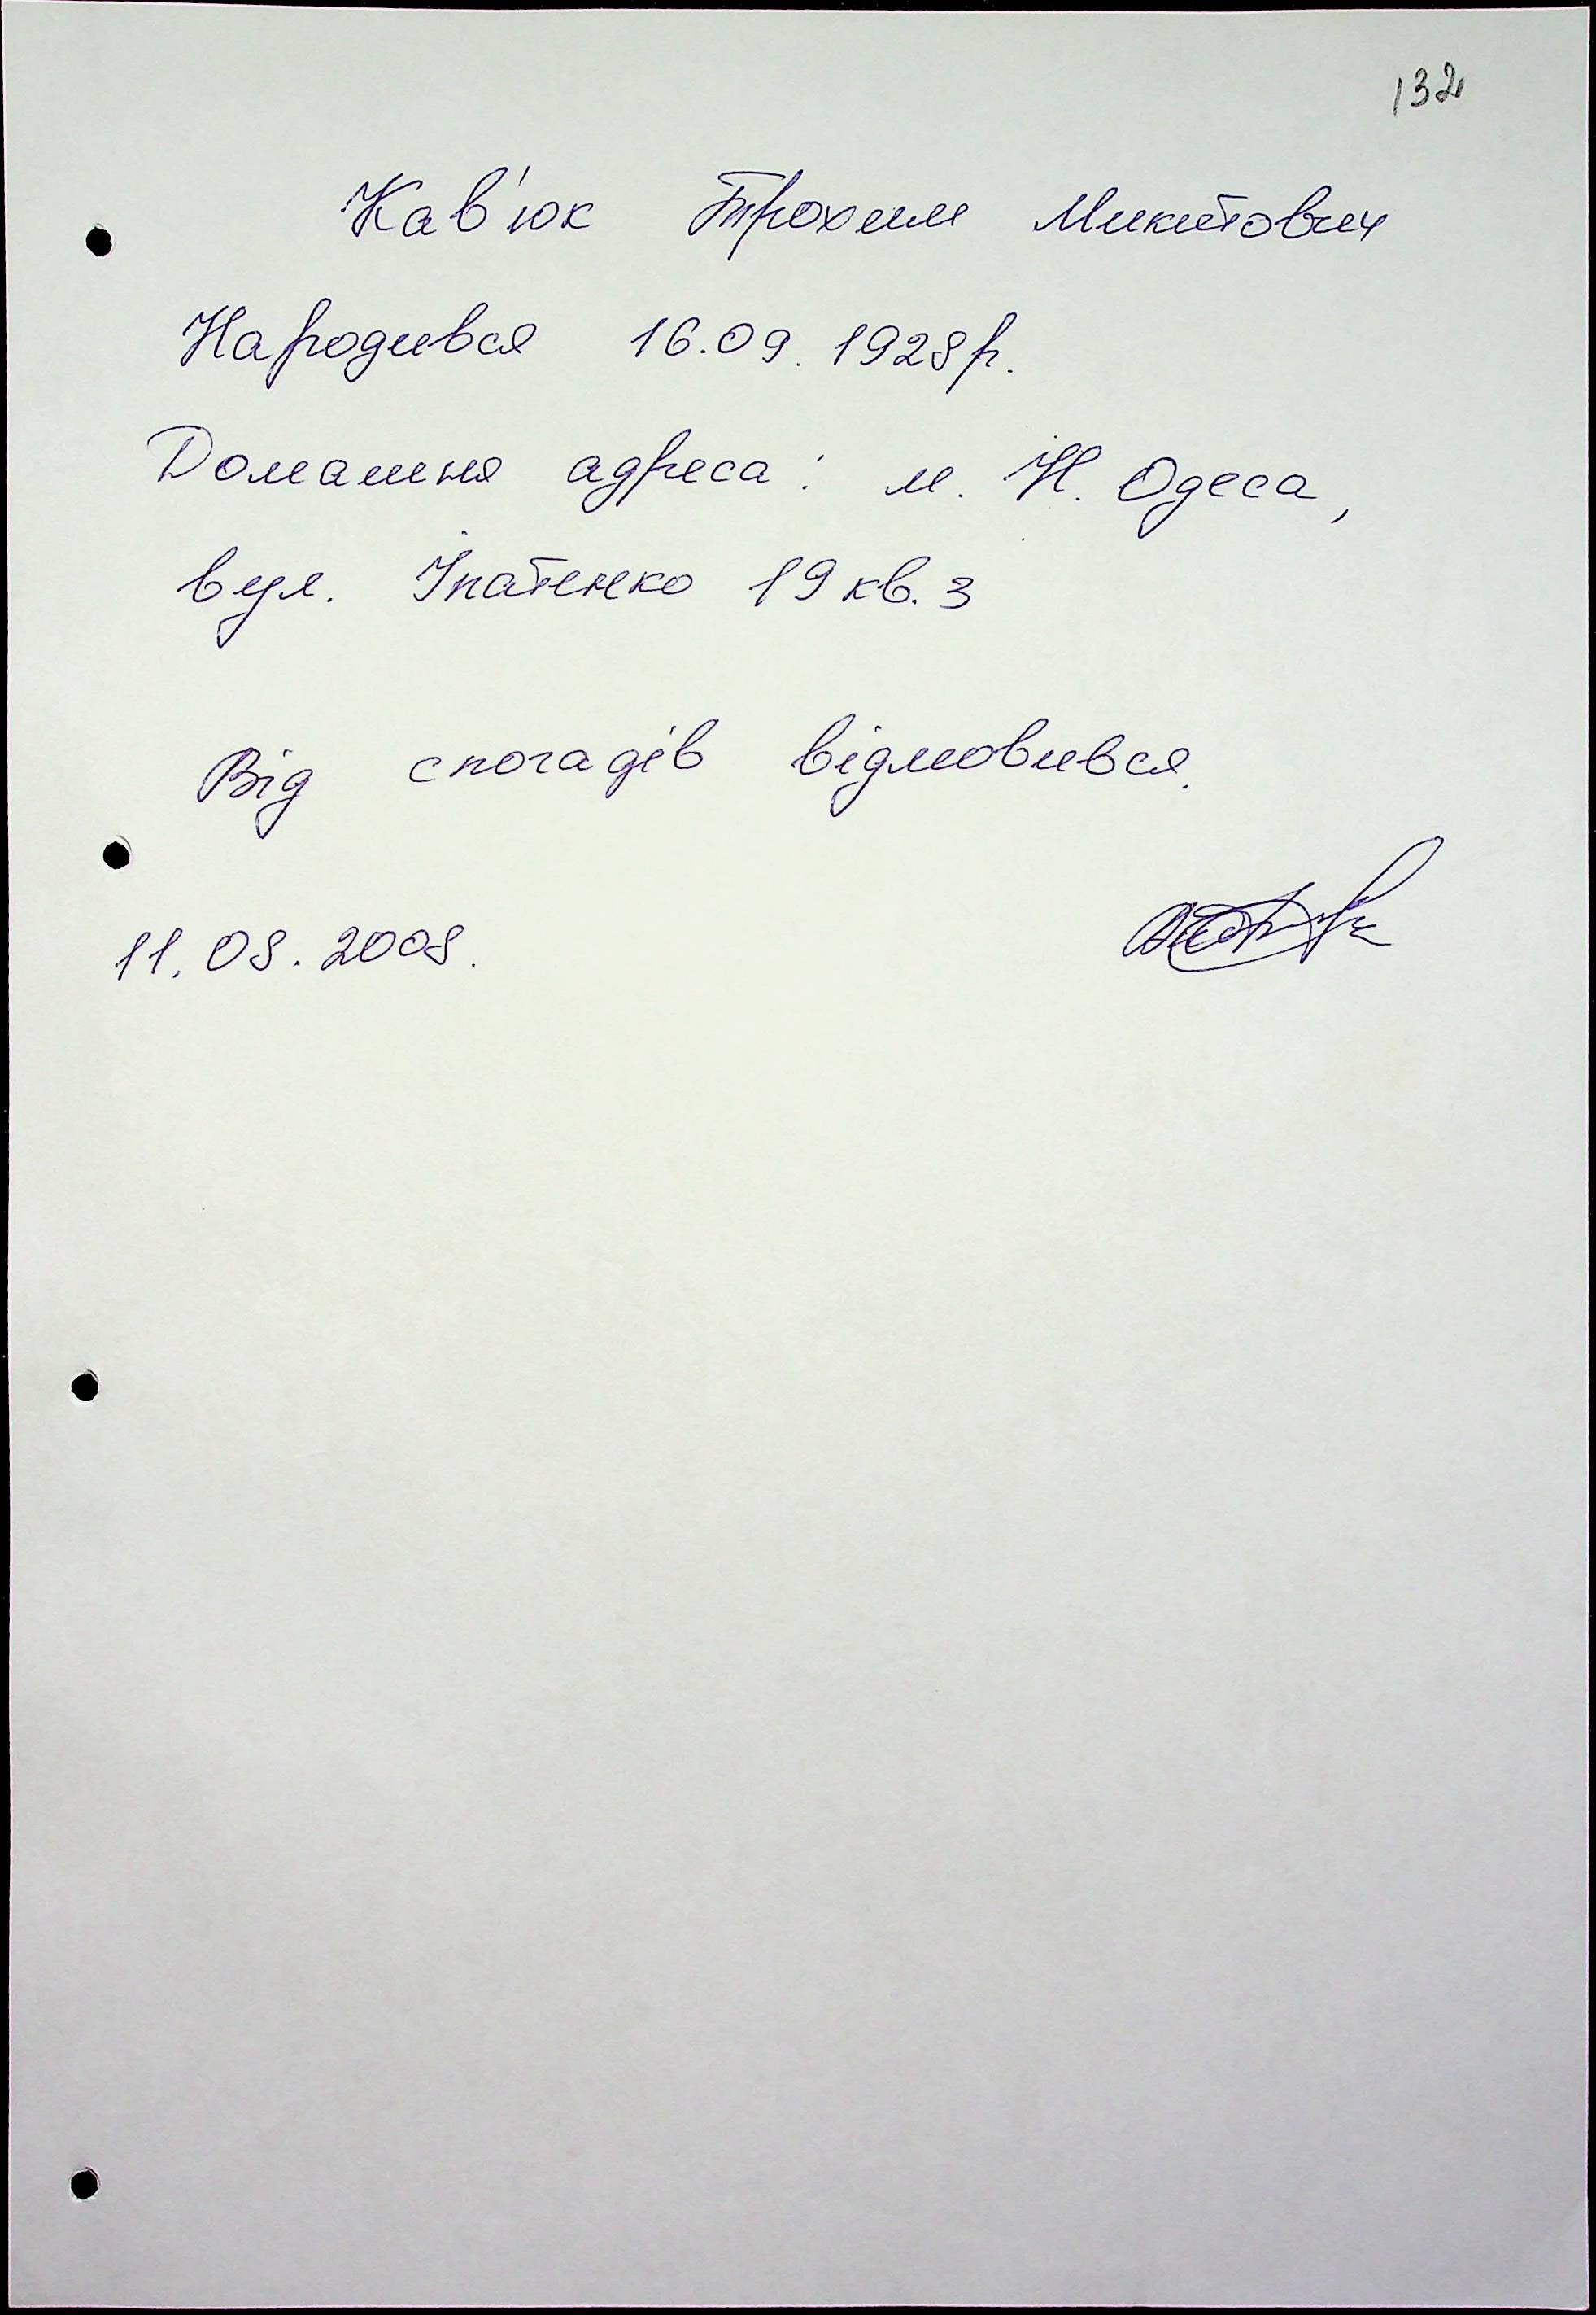 132
Кав'юк Трохим Микитович
Народився 16.09.1928р.
Домашня адреса: м. Н. Одеса,
вул. Іпатенко 19 кв. 3
Від спогадів відмовився.
11.08.2008.